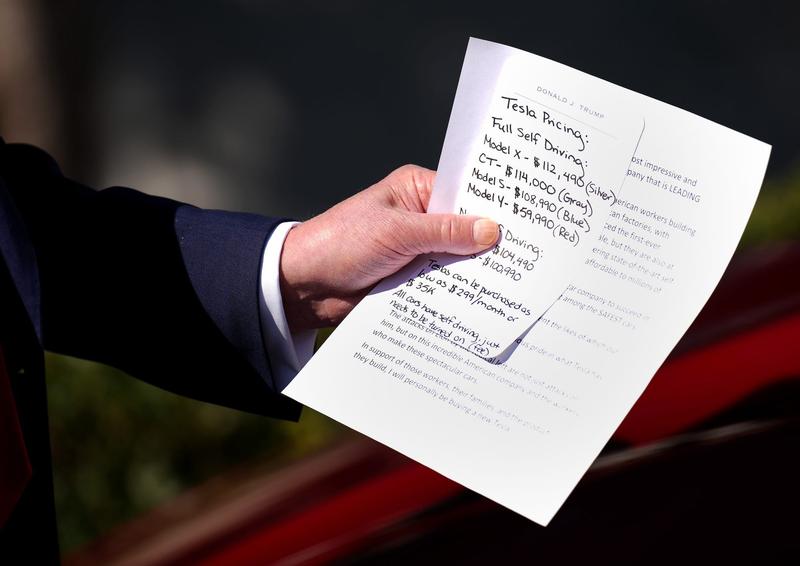 DONALD J. TRUMP
Tesla Pricing:
Full Self Driving:
Model X - $112,490 (Silver)
CT - $114,000 (Gray)
Model S - $108,990 (Blue)
Model Y - $59,990 (Red)
Driving:
$104,490
- $100,990
Teslas can be purchased as
low as $299/month or
$35K
All cars have self driving, just
needs to be turned on (fee)
ost impressive and
pany that is LEADING
erican workers building
an factories, with
ced the first-ever
ale, but they are also at
ering state-of-the-art self
affordable to millions of
ar company to succeed in
among the SAFEST cars
nt the likes of which our
us pride in what Tesla has
The attacks on left are not just attacks on
him, but on this incredible American company and the workers
who make these spectacular cars.
In support of those workers, their families, and the product
they build, I will personally be buying a new Tesla